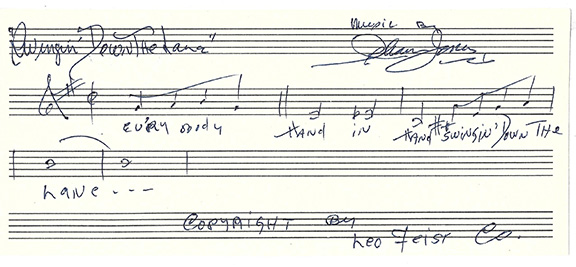 "Swingin' Down The Lane"
Music By
Isham Jones
EV'RY BODY HAND IN HAND SWINGIN' DOWN THE
LANE - - -
COPYRIGHT BY
Leo Feist Co.